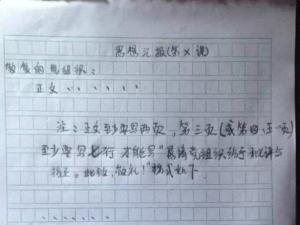 思想汇报(第X课)
敬爱的党组织:
正文、、、、、、
注:正文至少要写两页,第三页(或第四、五一页)
至少要写七行才能写"恳请党组织给予批评与
指正。此致,敬礼!"格式如下
、、、、、、